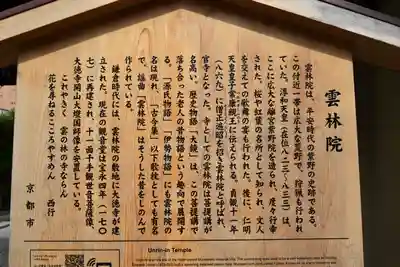 雲林院
雲林院は、平安時代の紫野の史跡である。
この付近一帯は広大な荒野で、狩猟も行われ
ていた。淳和天皇(在位八二三~八三三)は、
ここに広大な離宮紫野院を造られ、度々行幸
された。桜や紅葉の名所として知られ、文人
を交えての歌舞の宴も行われた。後に、仁明
天皇皇子常康親王に伝えられる。貞観十一年
(八六九)に僧正遍昭を招き雲林院と呼ばれ、
官寺となった。寺としての雲林院は菩提講が
名高い。歴史物語『大鏡』は、この菩提講で
落ち合った老人の昔物語という趣向で展開す
る。『源氏物語』『伊勢物語』にも雲林院の
名は現れ、『古今集』以下歌枕としても有名
で、謡曲『雲林院』はそうした昔をしのんで
作られている。
鎌倉時代には、雲林院の敷地に大徳寺が建
立された。現在の観音堂は宝永四年(一七〇
七)に再建され、十一面千手観世音菩薩像、
大徳寺開山大燈国師像を安置している。
これやきく 雲の林の寺ならん
花を尋ねるこころやすめん 西行
京都市
Unrin-in Temple